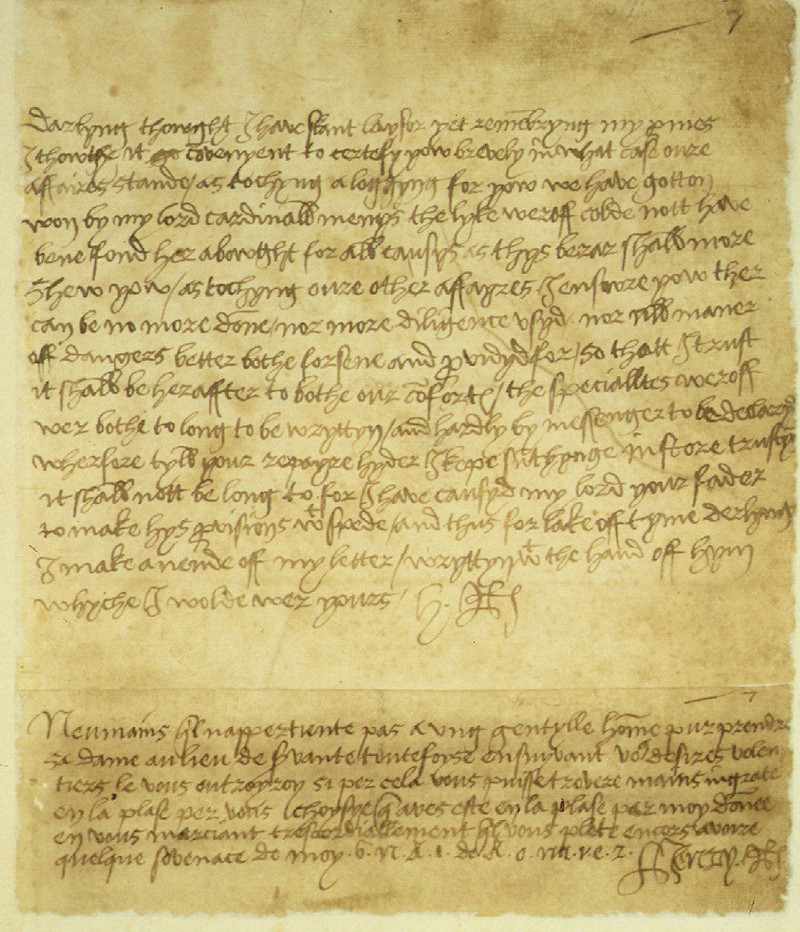 7
Darlyng thowght I have skant laysor yet remēbryng my ꝓmes
I thowthe it cōvenyent to certefy yow brevely in what case oure
affaires stande / as tochyng a loggyng for yow we have gotton
won by my lord cardinalls menys the lyke weroff colde nott have
bene fond her abowght for all causys as thys berar shall more
shew yow / as tochyng oure other affayres I ensvore yow ther
can be no more done / nor more diligence vsyd nor all maner
off dangers better bothe forsene and ꝓvidyd for / so thatt I trust
it shall be heraffter to bothe our cōforte / the specialltes weroff
wer bothe to long to be wryttyn / and hardly by messenger to be declaryd
wherfore tyll your repayre hyder I kepe sumthynge in store trustyng
it shall nott be long to for I have causyd my lord your fader
to make hys ꝓvisions wᵗ spede / and thus for lake off tyme derlyng
I make an ende off my letter / wryttyn wᵗ the hand off hym
whyche I wolde wer yours / H. R
7
Neumains qˡl napperteinte pas a ung gentylle hōme pur prendre
sa dame au lieu de servante toutefoyse ensuivant vos desires volen
tiers le vous outroyroy si per cela vous puisse trovere mains ingrate
en la plase per vous choysye q̄ aves este en la plase par moy donee
en vous marciant trescordiallement qˡl vous plete encors avoire
quelque sovenāce de moy . 6 . n . A . 1 . de A . o . na . v . e . z .